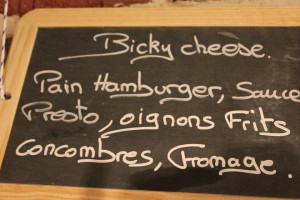 Bicky cheese.
Pain Hamburger, Sauce
Presto, oignons Frits
Concombres, Fromage.